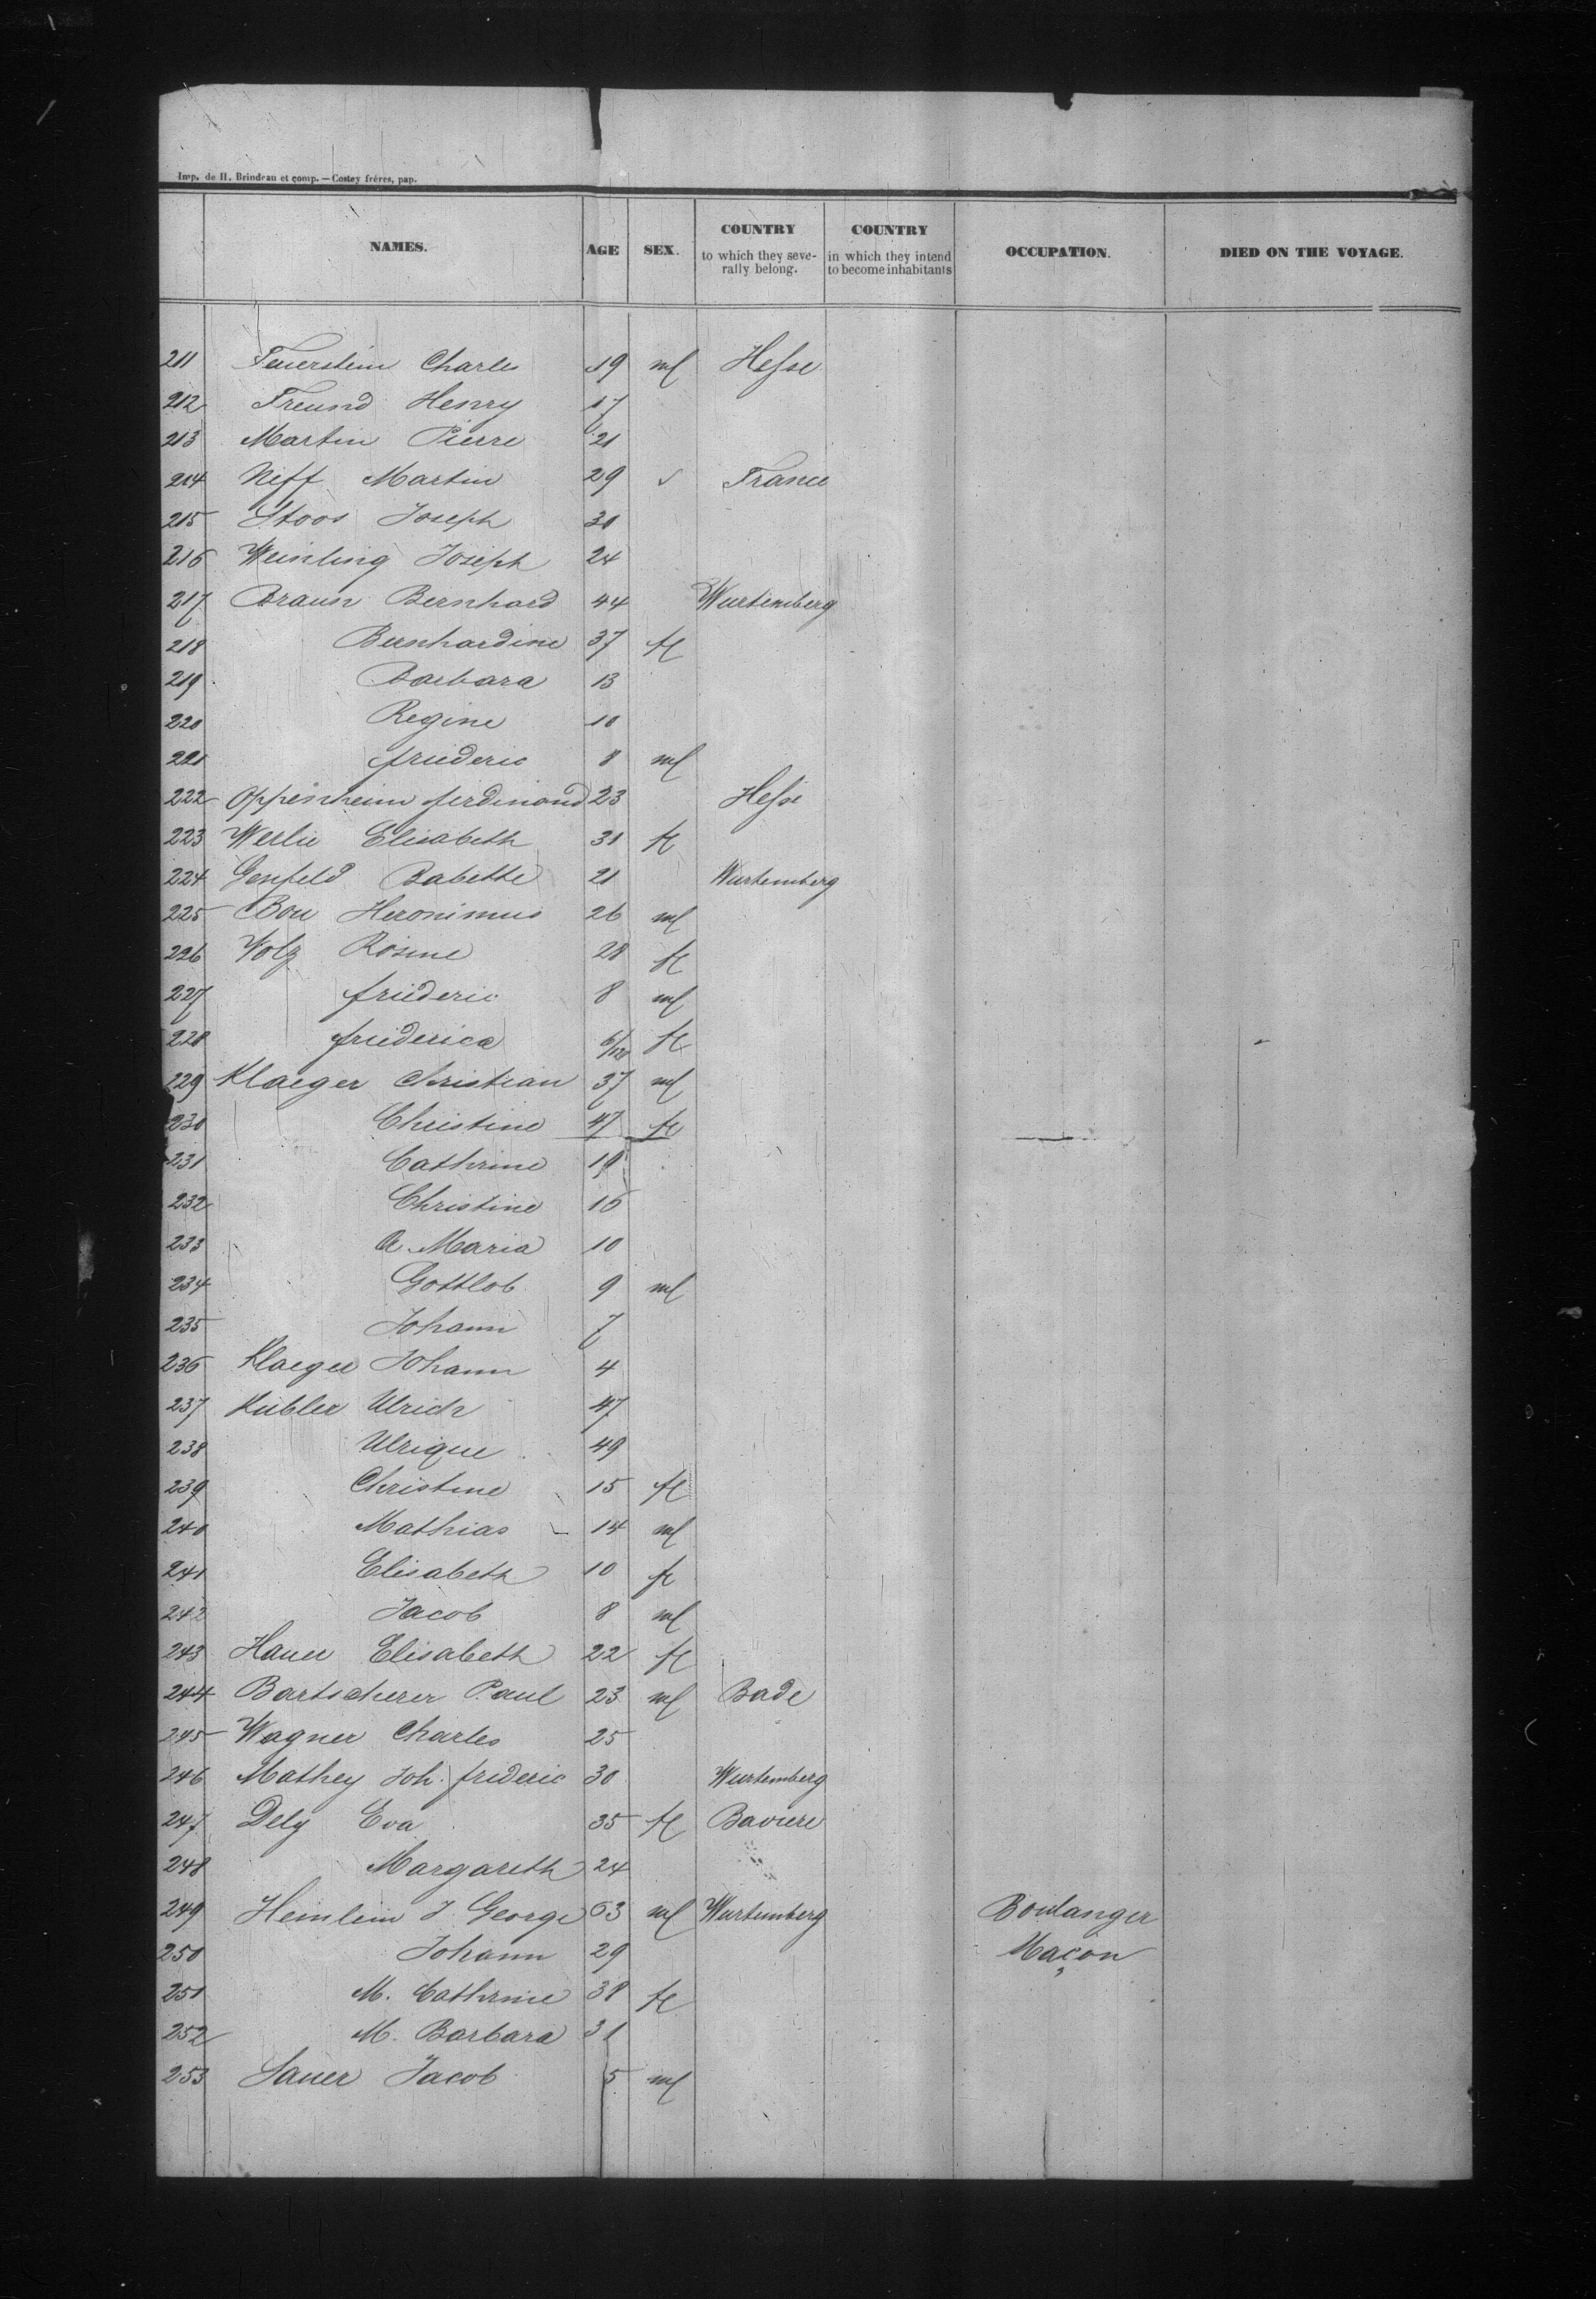 Imp. de H. Brindeau et comp. — Costey fréres, pap.
NAMES. AGE SEX. COUNTRY to which they seve- rally belong. COUNTRY in which they intend to become inhabitants OCCUPATION. DIED ON THE VOYAGE.
211 Feuerstein Charles 19 ml Hesse
212 Freund Henry 17
213 Martin Pierre 21
214 Neff Martin 29 France
215 Stoos Joseph 30
216 Weinling Joseph 24
217 Braun Bernhard 44 Wurtemberg
218 Bernhardine 37 fe
219 Barbara 13
220 Regine 10
221 friederic 8 ml
222 Oppenheim ferdinand 23 Hesse
223 Werlie Elisabeth 31 fe
224 Genfeld Babette 21 Wurtemberg
225 Bou Heronimus 26 ml
226 Volz Rosine 28 fe
227 friederic 8 ml
228 friederica 6/12 fe
229 Klaeger Christian 37 ml
230 Christine 47 fe
231 Cathrine 19
232 Christine 16
233 A. Maria 10
234 Gottlob 9 ml
235 Johann 7
236 Klaeger Johann 4
237 Kubler Ulrich 47
238 Ulrique 49
239 Christine 15 fe
240 Mathias 14 ml
241 Elisabeth 10 fe
242 Jacob 8 ml
243 Hauer Elisabeth 22 fe
244 Bartscherer Paul 23 ml Bade
245 Wagner Charles 25
246 Mathey Joh. frideric 30 Wurtemberg
247 Dely Eva 35 fe Baviere
248 Margareth 24
249 Heinlein J. George 63 ml Wurtemberg Boulanger
250 Johann 29 Maçon
251 M. Cathrine 38 fe
252 M. Barbara 31
253 Sauer Jacob 5 ml